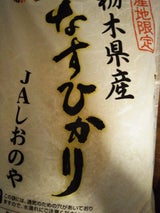 産地限定
栃木県産
なすひかり
JAしおのや